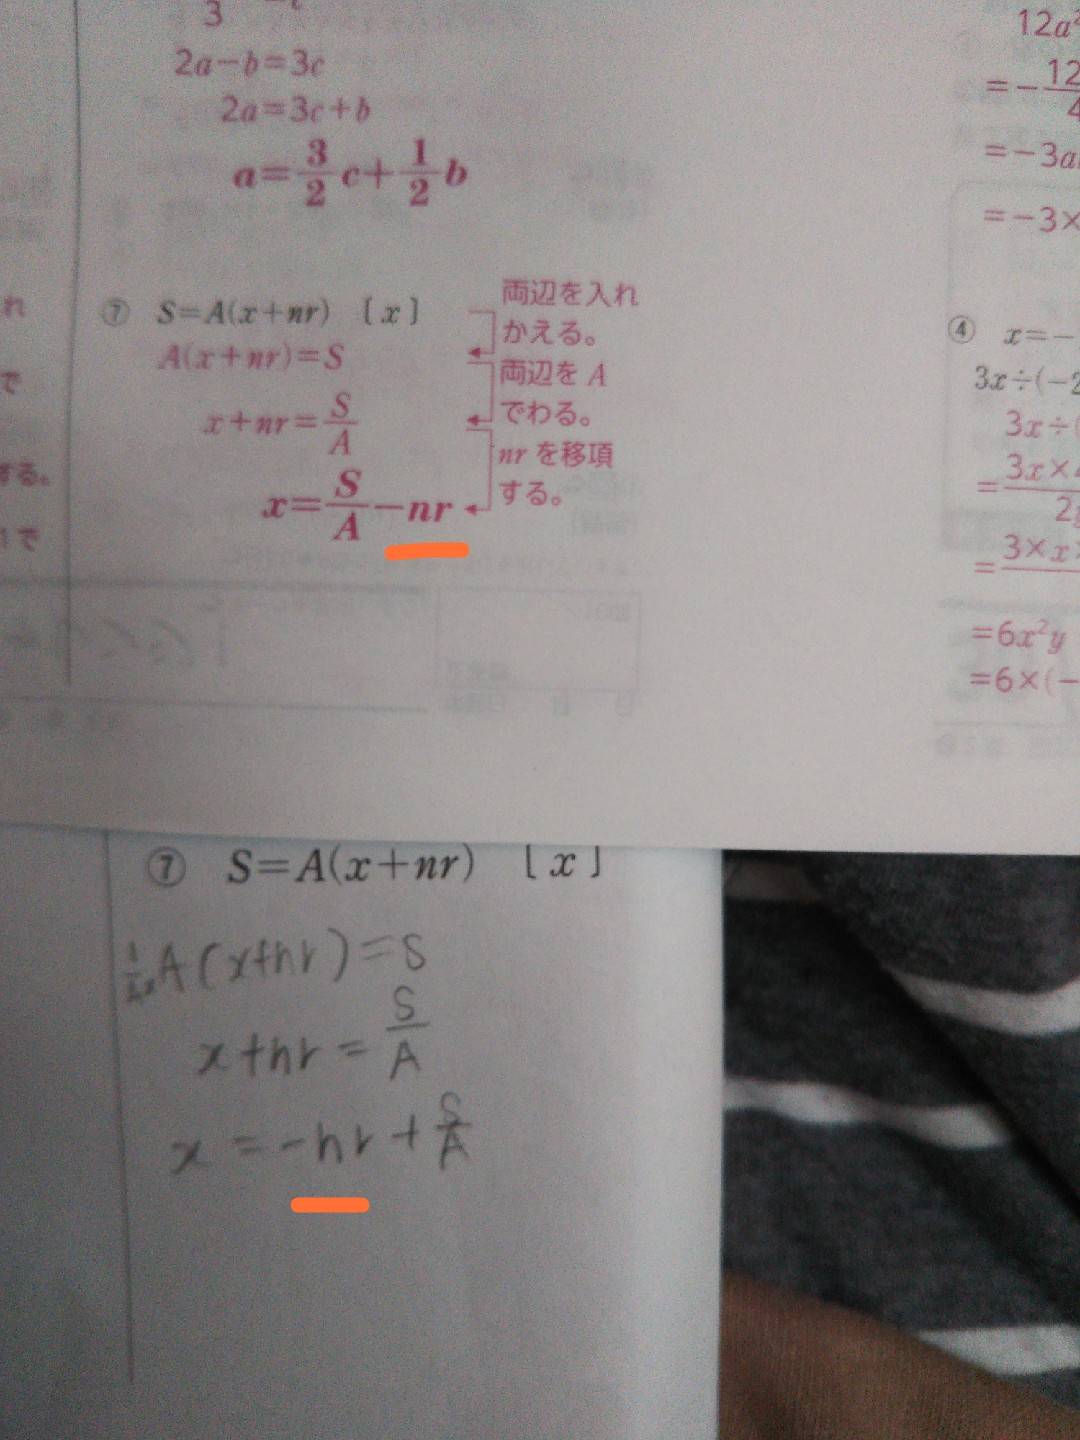 3
2a−b=3c
2a=3c+b
a=3/2 c+1/2 b
⑦ S=A(x+nr) 〔x〕
A(x+nr)=S
x+nr=S/A
x=S/A−nr
両辺を入れ
かえる。
両辺を A
でわる。
nr を移項
する。
れ
で
する。
で
12a²
=−12/4
=−3a
=−3×
④ x=−
3x÷(−2
3x÷(
=3x×/2
=3×x×
=6x²y
=6×(−
⑦ S=A(x+nr) 〔x〕
A(x+nr)=S
x+nr=S/A
x=−nr+S/A